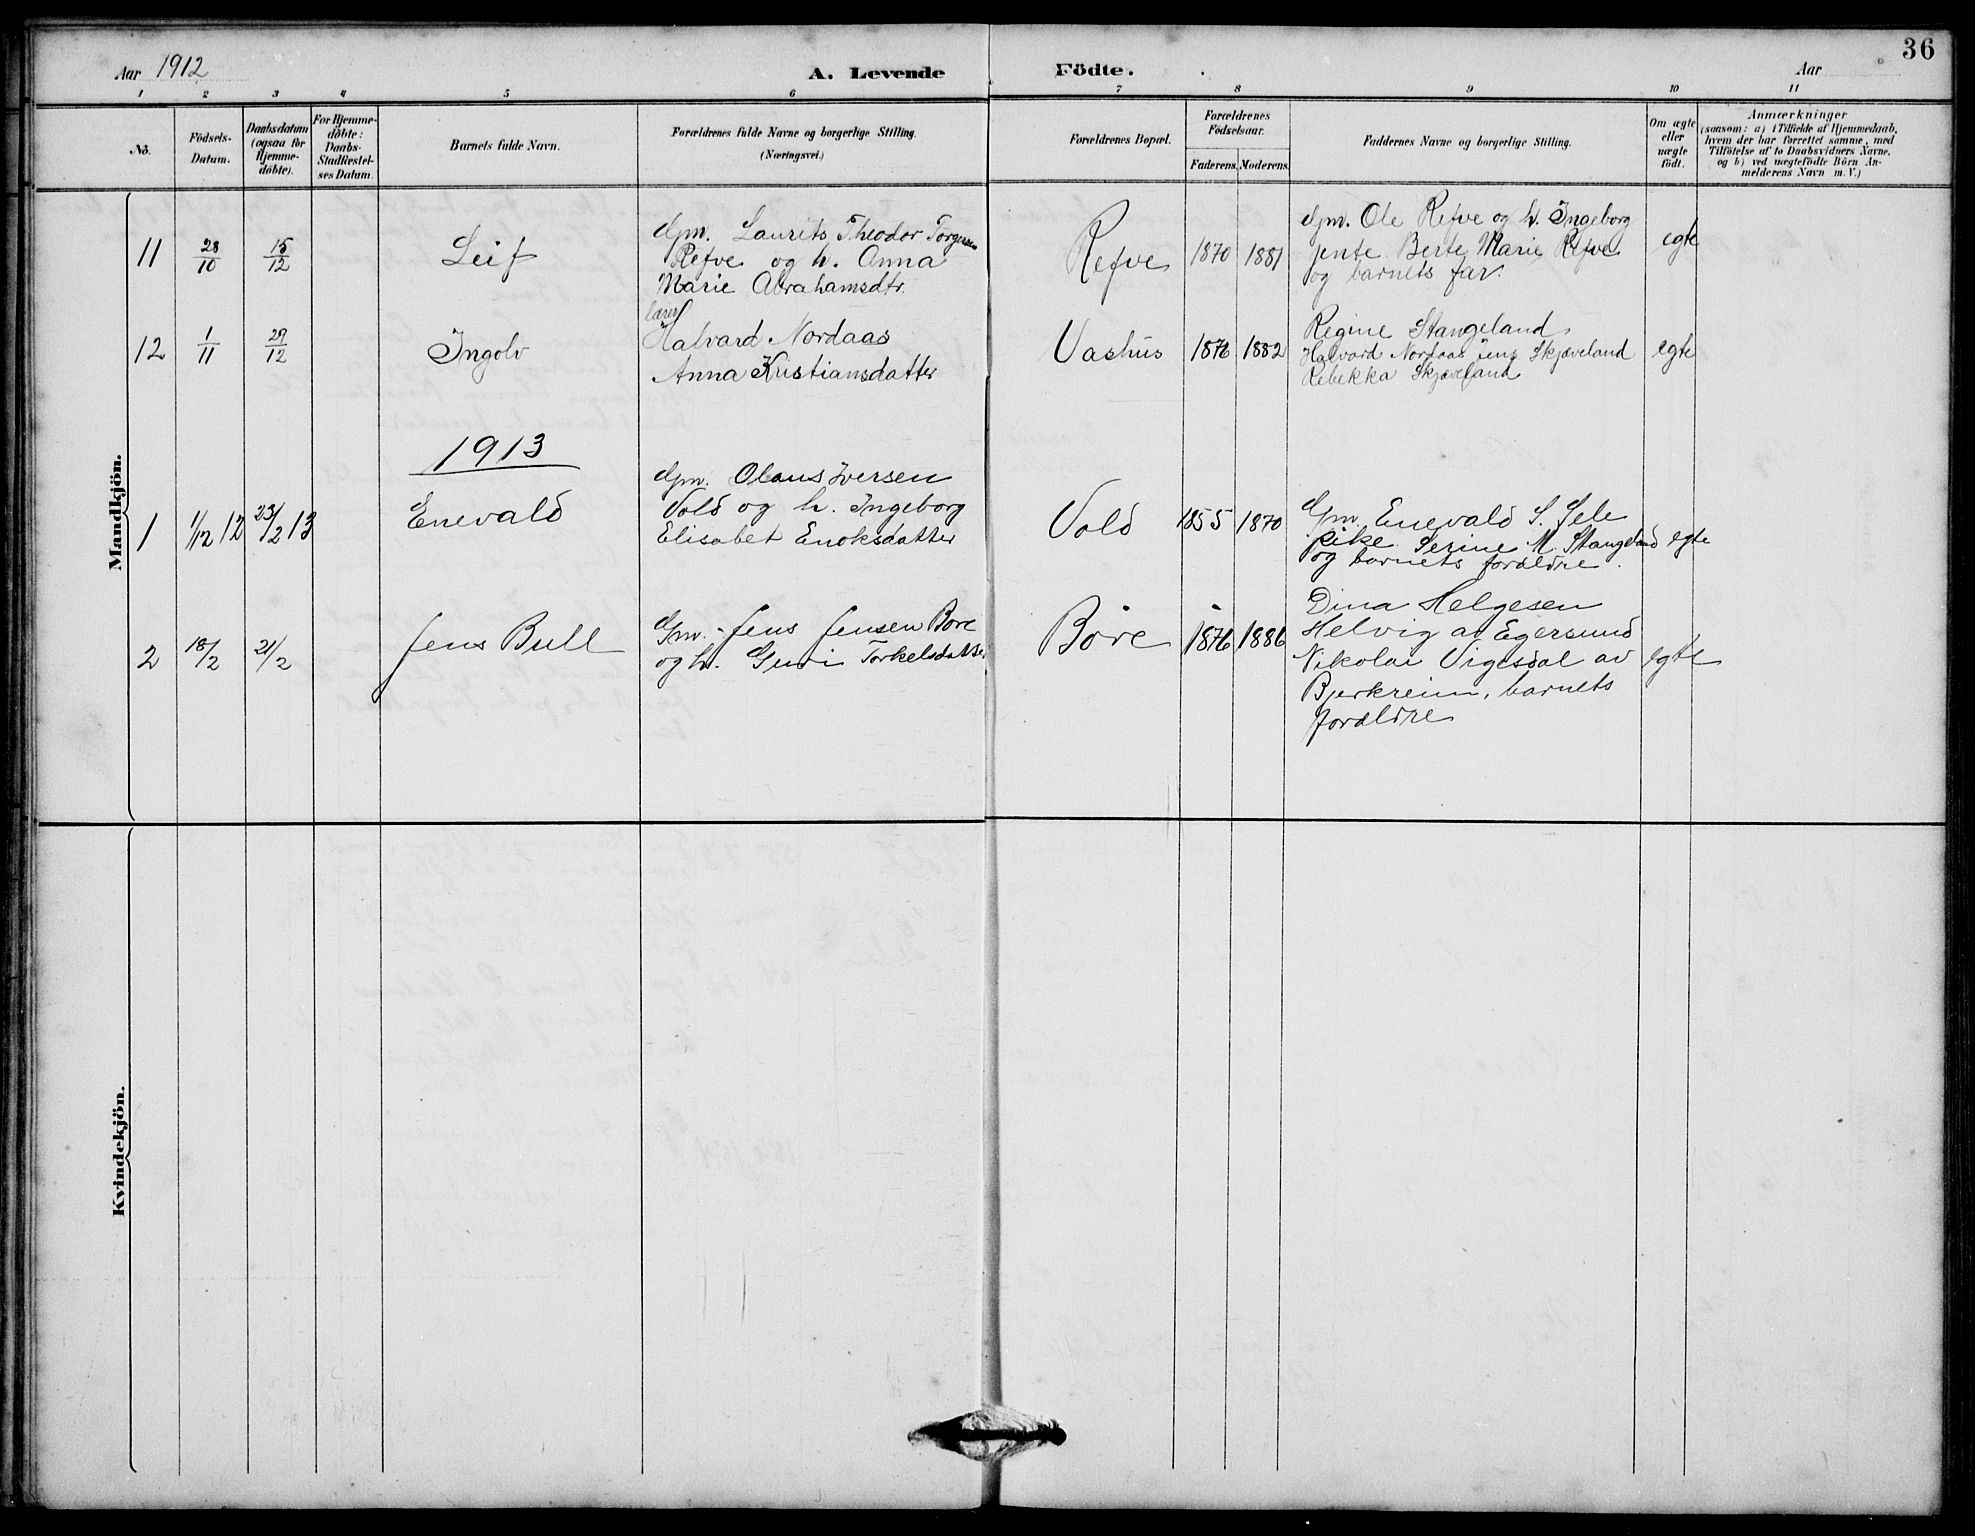 36
Aar 1912
A. Levende
Födte.
Aar
1 2 3 4 5 6 7 8 9 10 11
No.
Födsels-
Datum.
Daabsdatum
(ogsaa for
Hjemme-
döbte).
For Hjemme-
döbte:
Daabs-
Stadfæstel-
ses Datum.
Barnets fulde Navn.
Forældrenes fulde Navne og borgerlige Stilling.
(Næringsvei.)
Forældrenes Bopæl.
Forældrenes
Födselsaar.
Faderens. Moderens.
Faddernes Navne og borgerlige Stilling.
Om ægte
eller
uægte
födt.
Anmærkninger
(saasom: a) i Tilfælde af Hjemmedaab,
hvem der har forrettet samme, med
Tilföielse af to Daabsvidners Navne,
og b) ved uægtefödte Börn An-
melderens Navn m. V.)
Mandkjön.
11 28/10 15/12 Leif
gm. Laurits Theodor Torgersen
Refve og h. Anna
Marie Abrahamsdtr.
Refve 1870 1881
gm. Ole Refve og h. Ingeborg
jente Berte Marie Refve
og barnets far.
egte
12 1/11 29/12 Ingolv
lærer
Halvard Nordaas
Anna Kristiansdatter
Vashus 1876 1882
Regine Stangeland,
Halvard Nordaas Jens Skjæveland
Rebekka Skjæveland
egte
1913
1 1/12 12 23/2 13 Enevald
gm. Olaus Iversen
Vold og h. Ingeborg
Elisabet Enoksdatter
Vold 1855 1870
Gm. Enevald S. Sele
pike Serine M. Stangeland
og barnets forældre.
egte
2 18/2 21/2 Jens Bull
Gm. Jens Jensen Bore
og h. Guri Torkelsdatter
Bore 1876 1886
Dina Helgesen
Helvig av Egersund
Nikolai Vigesdal av
Bjerkreim, barnets
forældre
egte
Kvindekjön.